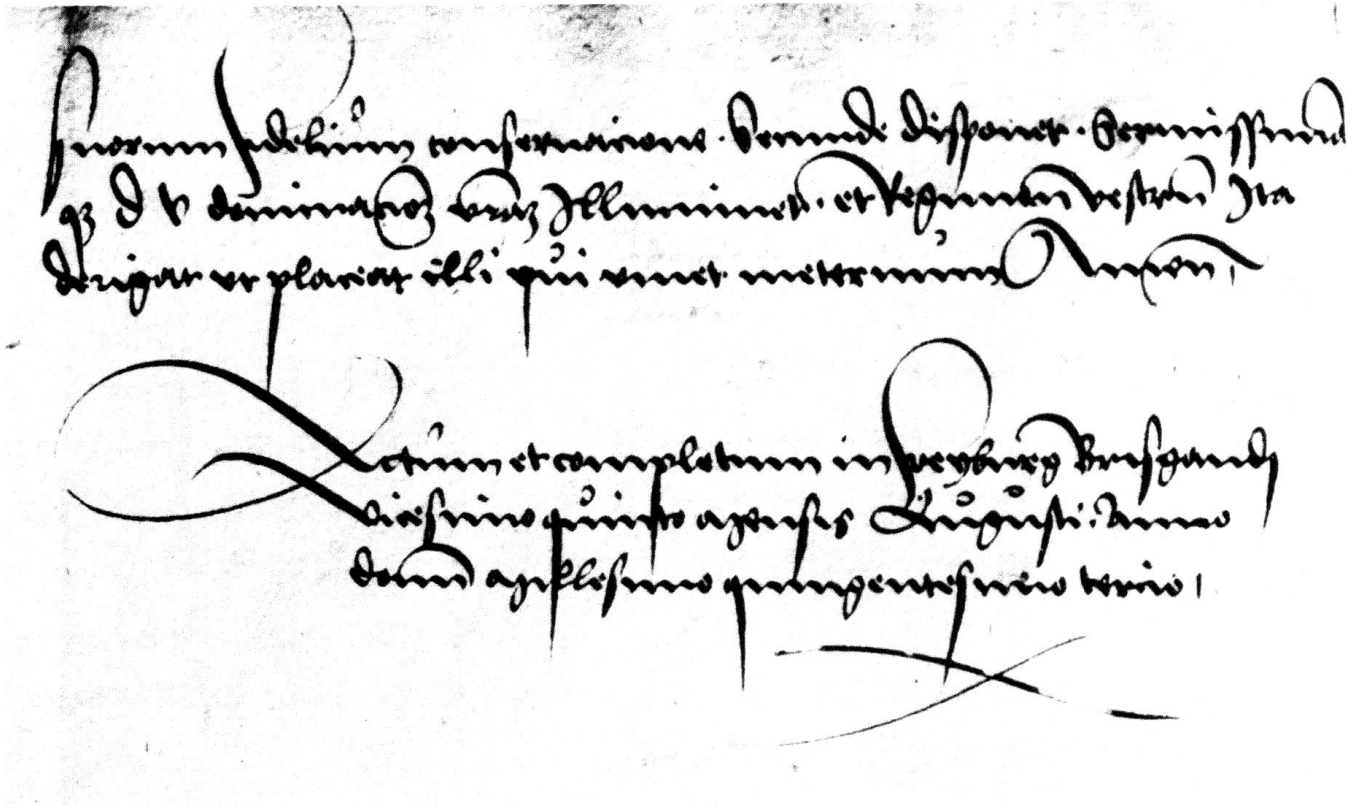 suorum fidelium conseruacione. Secunde disponet. Serenissimam
qz d v dominacionez vraz Illuminet. et Regimen vestrum Ita
derigat ut placeat illi qui viuet ineternum Amen
Actum et completum in freyburg Brisgaudj
vicesimo quinto mensis Augusti. Anno
domi millesimo quingentesimo tercio